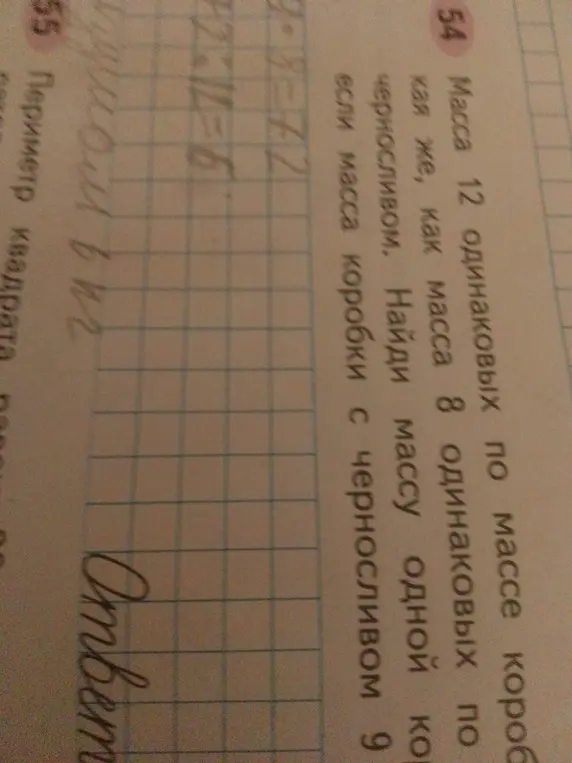 54 Масса 12 одинаковых по массе короб
кая же, как масса 8 одинаковых по
черносливом. Найди массу одной кор
если масса коробки с черносливом 9
9 · 8 = 72
72 : 12 = 6
в кг
Ответ
55 Периметр квадрата